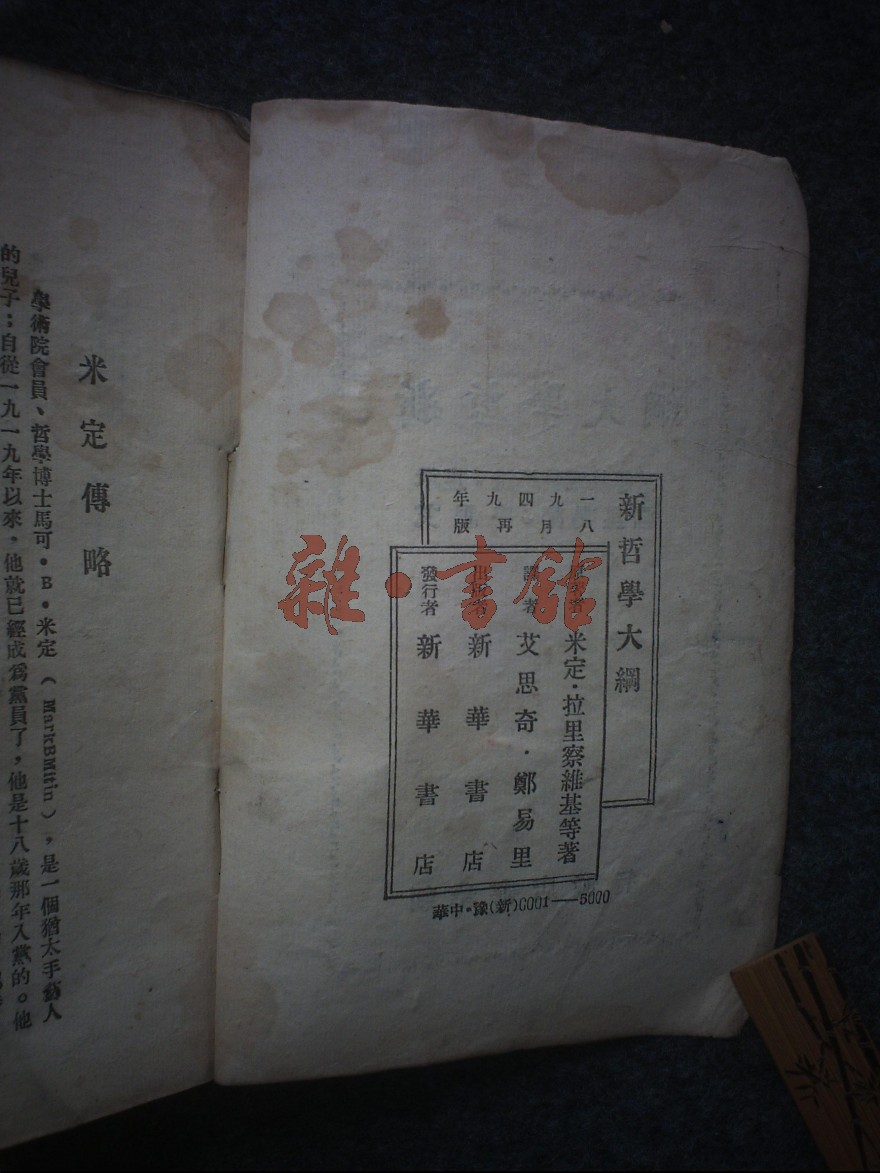 新哲學大綱
一九四九年
八月再版
米定·拉里察維基等著
譯者 艾思奇·鄭易里
出版者 新華書店
發行者 新華書店
華中·豫(新)0001——5000
米定傳略
學術院會員、哲學博士馬可·B·米定(MarkBMitin),是一個猶太手藝人
的兒子:自從一九一九年以來,他就已經成為黨員了,他是十八歲那年入黨的。他
雜·書館